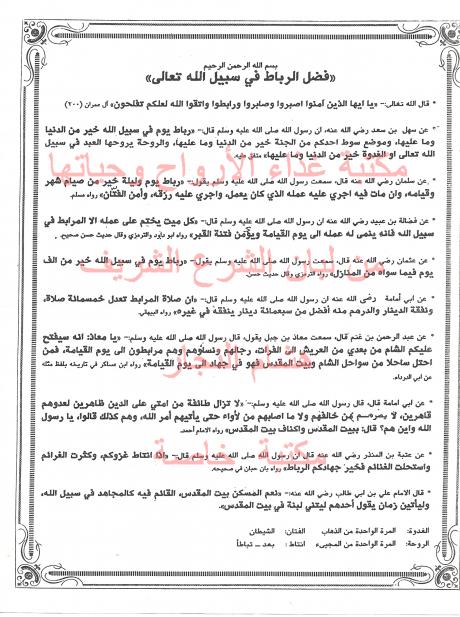 بسم الله الرحمن الرحيم
«فضل الرباط في سبيل الله تعالى»
* قال الله تعالى:– «يا ايها الذين آمنوا اصبروا وصابروا ورابطوا واتقوا الله لعلكم تفلحون» آل عمران (٢٠٠)
* عن سهل بن سعد رضي الله عنه، ان رسول الله صلى الله عليه وسلم قال:– «رباط يوم في سبيل الله خير من الدنيا
وما عليها، وموضع سوط احدكم من الجنة خير من الدنيا وما عليها، والروحة يروحها العبد في سبيل
الله تعالى او الغدوة خير من الدنيا وما عليها» متفق عليه.
مكتبة غذاء الأرواح وحياتها
* عن سلمان رضي الله عنه، قال، سمعت رسول الله صلى الله عليه وسلم يقول:– «رباط يوم وليلة خير من صيام شهر
وقيامه، وان مات فيه اجري عليه عمله الذي كان يعمل، واجري عليه رزقه، وأمن الفتّان» رواه مسلم.
* عن فضالة بن عبيد رضي الله عنه ان رسول الله صلى الله عليه وسلم قال:– «كل ميت يختم على عمله الا المرابط في
سبيل الله فانه ينمى له عمله الى يوم القيامة ويؤمن فتنة القبر» رواه ابو داود والترمذي وقال حديث حسن صحيح.
* عن عثمان رضي الله عنه قال، سمعت رسول الله صلى الله عليه وسلم يقول:– «رباط يوم في سبيل الله خير من الف
يوم فيما سواه من المنازل» رواه الترمذي وقال حديث حسن.
من لبان الشرع الشريف
* عن ابي أمامة رضي الله عنه ان رسول الله صلى الله عليه وسلم قال:– «ان صلاة المرابط تعدل خمسمائة صلاة،
ونفقة الدينار والدرهم منه أفضل من سبعمائة دينار ينفقه في غيره» رواه البيهقي.
* عن عبد الرحمن بن غنم قال، سمعت معاذ بن جبل يقول، قال رسول الله صلى الله عليه وسلم:– «يا معاذ: انه سيفتح
عليكم الشام من بعدي من العريش الى الفرات، رجالهم ونساؤهم وهم مرابطون الى يوم القيامة، فمن
احتل ساحلا من سواحل الشام وبيت المقدس فهو في جهاد الى يوم القيامة» رواه ابن عساكر في تاريخه بلفظ مثله
عن ابي الدرداء.
هشام النجار
* عن ابي امامة قال، قال رسول الله صلى الله عليه وسلم:– «لا تزال طائفة من امتي على الدين ظاهرين لعدوهم
قاهرين، لا يضرهم من خالفهم ولا ما اصابهم من لأواء حتى يأتيهم أمر الله، وهم كذلك قالوا، يا رسول
الله واين هم؟ قال: ببيت المقدس واكناف بيت المقدس» رواه الامام أحمد.
مكتبة خاصة
* عن عتبة بن المنذر رضي الله عنه قال ان رسول الله صلى الله عليه وسلم قال:– «اذا انتاط غزوكم، وكثرت الغرائم
واستحلت الغنائم فخير جهادكم الرباط» رواه بان حبان في صحيحه.
* قال الامام علي بن ابي طالب رضي الله عنه:– «نعم المسكن بيت المقدس، القائم فيه كالمجاهد في سبيل الله،
وليأتين زمان يقول أحدهم ليتني لبنة في بيت المقدس».
الغدوة: المرة الواحدة من الذهاب الفتان: الشيطان
الروحة: المرة الواحدة من المجيء انتاط: بعد – تباطأ